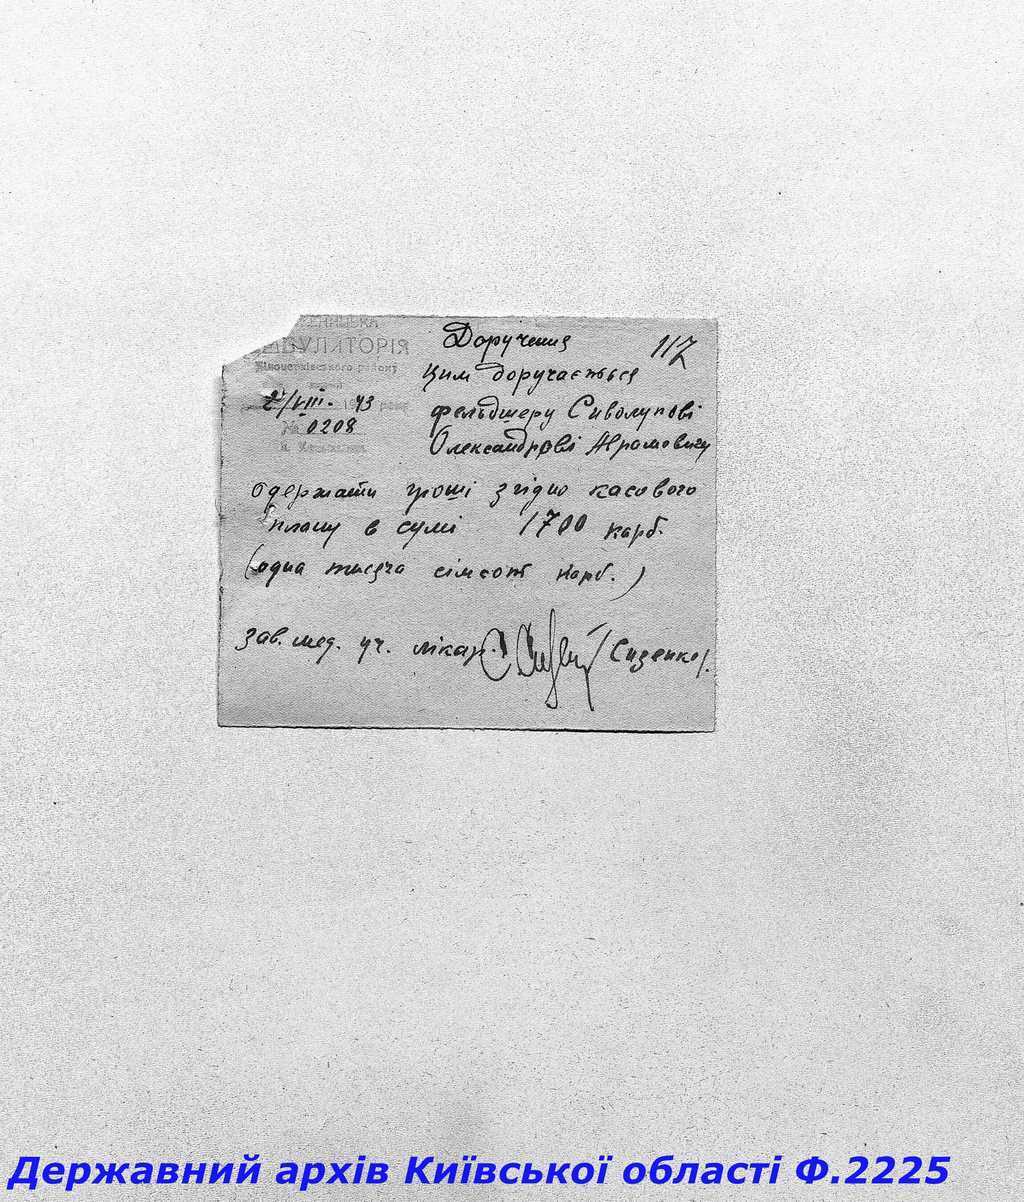 АМБУЛЯТОРІЯ
Білоцерківського району
2/VIII. 43 року
№ 0208
Доручення
117
Цим доручається
фельдшеру Сиволупові
Олександрові Аврамовичу
одержати гроші згідно касового
плану в сумі 1700 карб.
(одна тисяча сімсот карб.)
Зав. мед. уч. лікар. /Сизенко/.
Державний архів Київської області Ф.2225